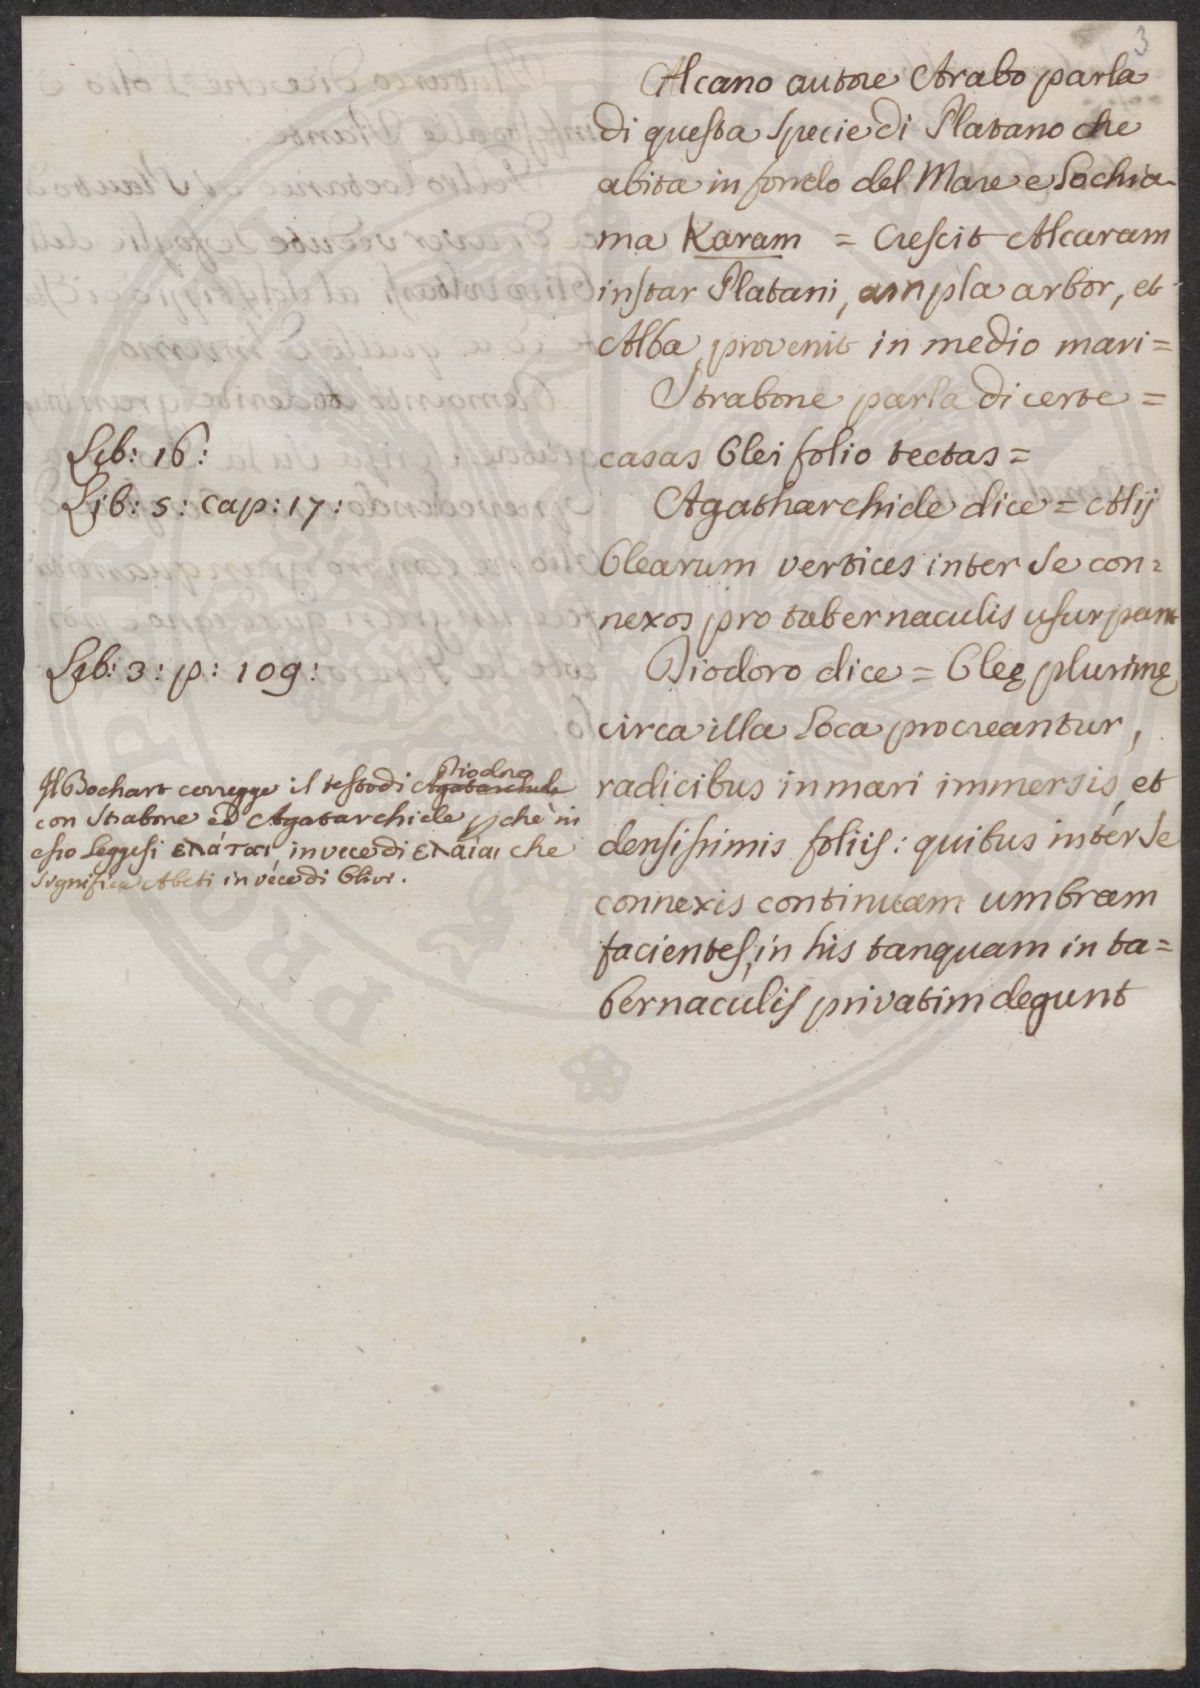 3
Alcano autore Arabo parla
di questa specie di Platano che
abita in fondo del Mare e lo chia-
ma Karam = Crescit Alcaram
instar Platani, ampla arbor, et
Alba, provenit in medio mari =
Strabone parla di certe =
Lib: 16:
casas Olei folio tectas =
Lib: 5: cap: 17:
Agatharchide dice = Alij
Olearum vertices inter se con=
nexos pro tabernaculis usurpant
Lib: 3: p: 109:
Diodoro dice = Oleę plurimę
circa illa loca procreantur,
radicibus in mari immersis, et
densissimis foliis: quibus inter se
connexis continuam umbram
facientes, in his tanquam in ta=
bernaculis privatim degunt
Diodoro
Il Bochart corregge il testo di Agatarchide
con Strabone ed Agatarchide pchè in
esso leggesi ελάται, invece di ελαίαι che
significa Abeti in vece di Olivi.